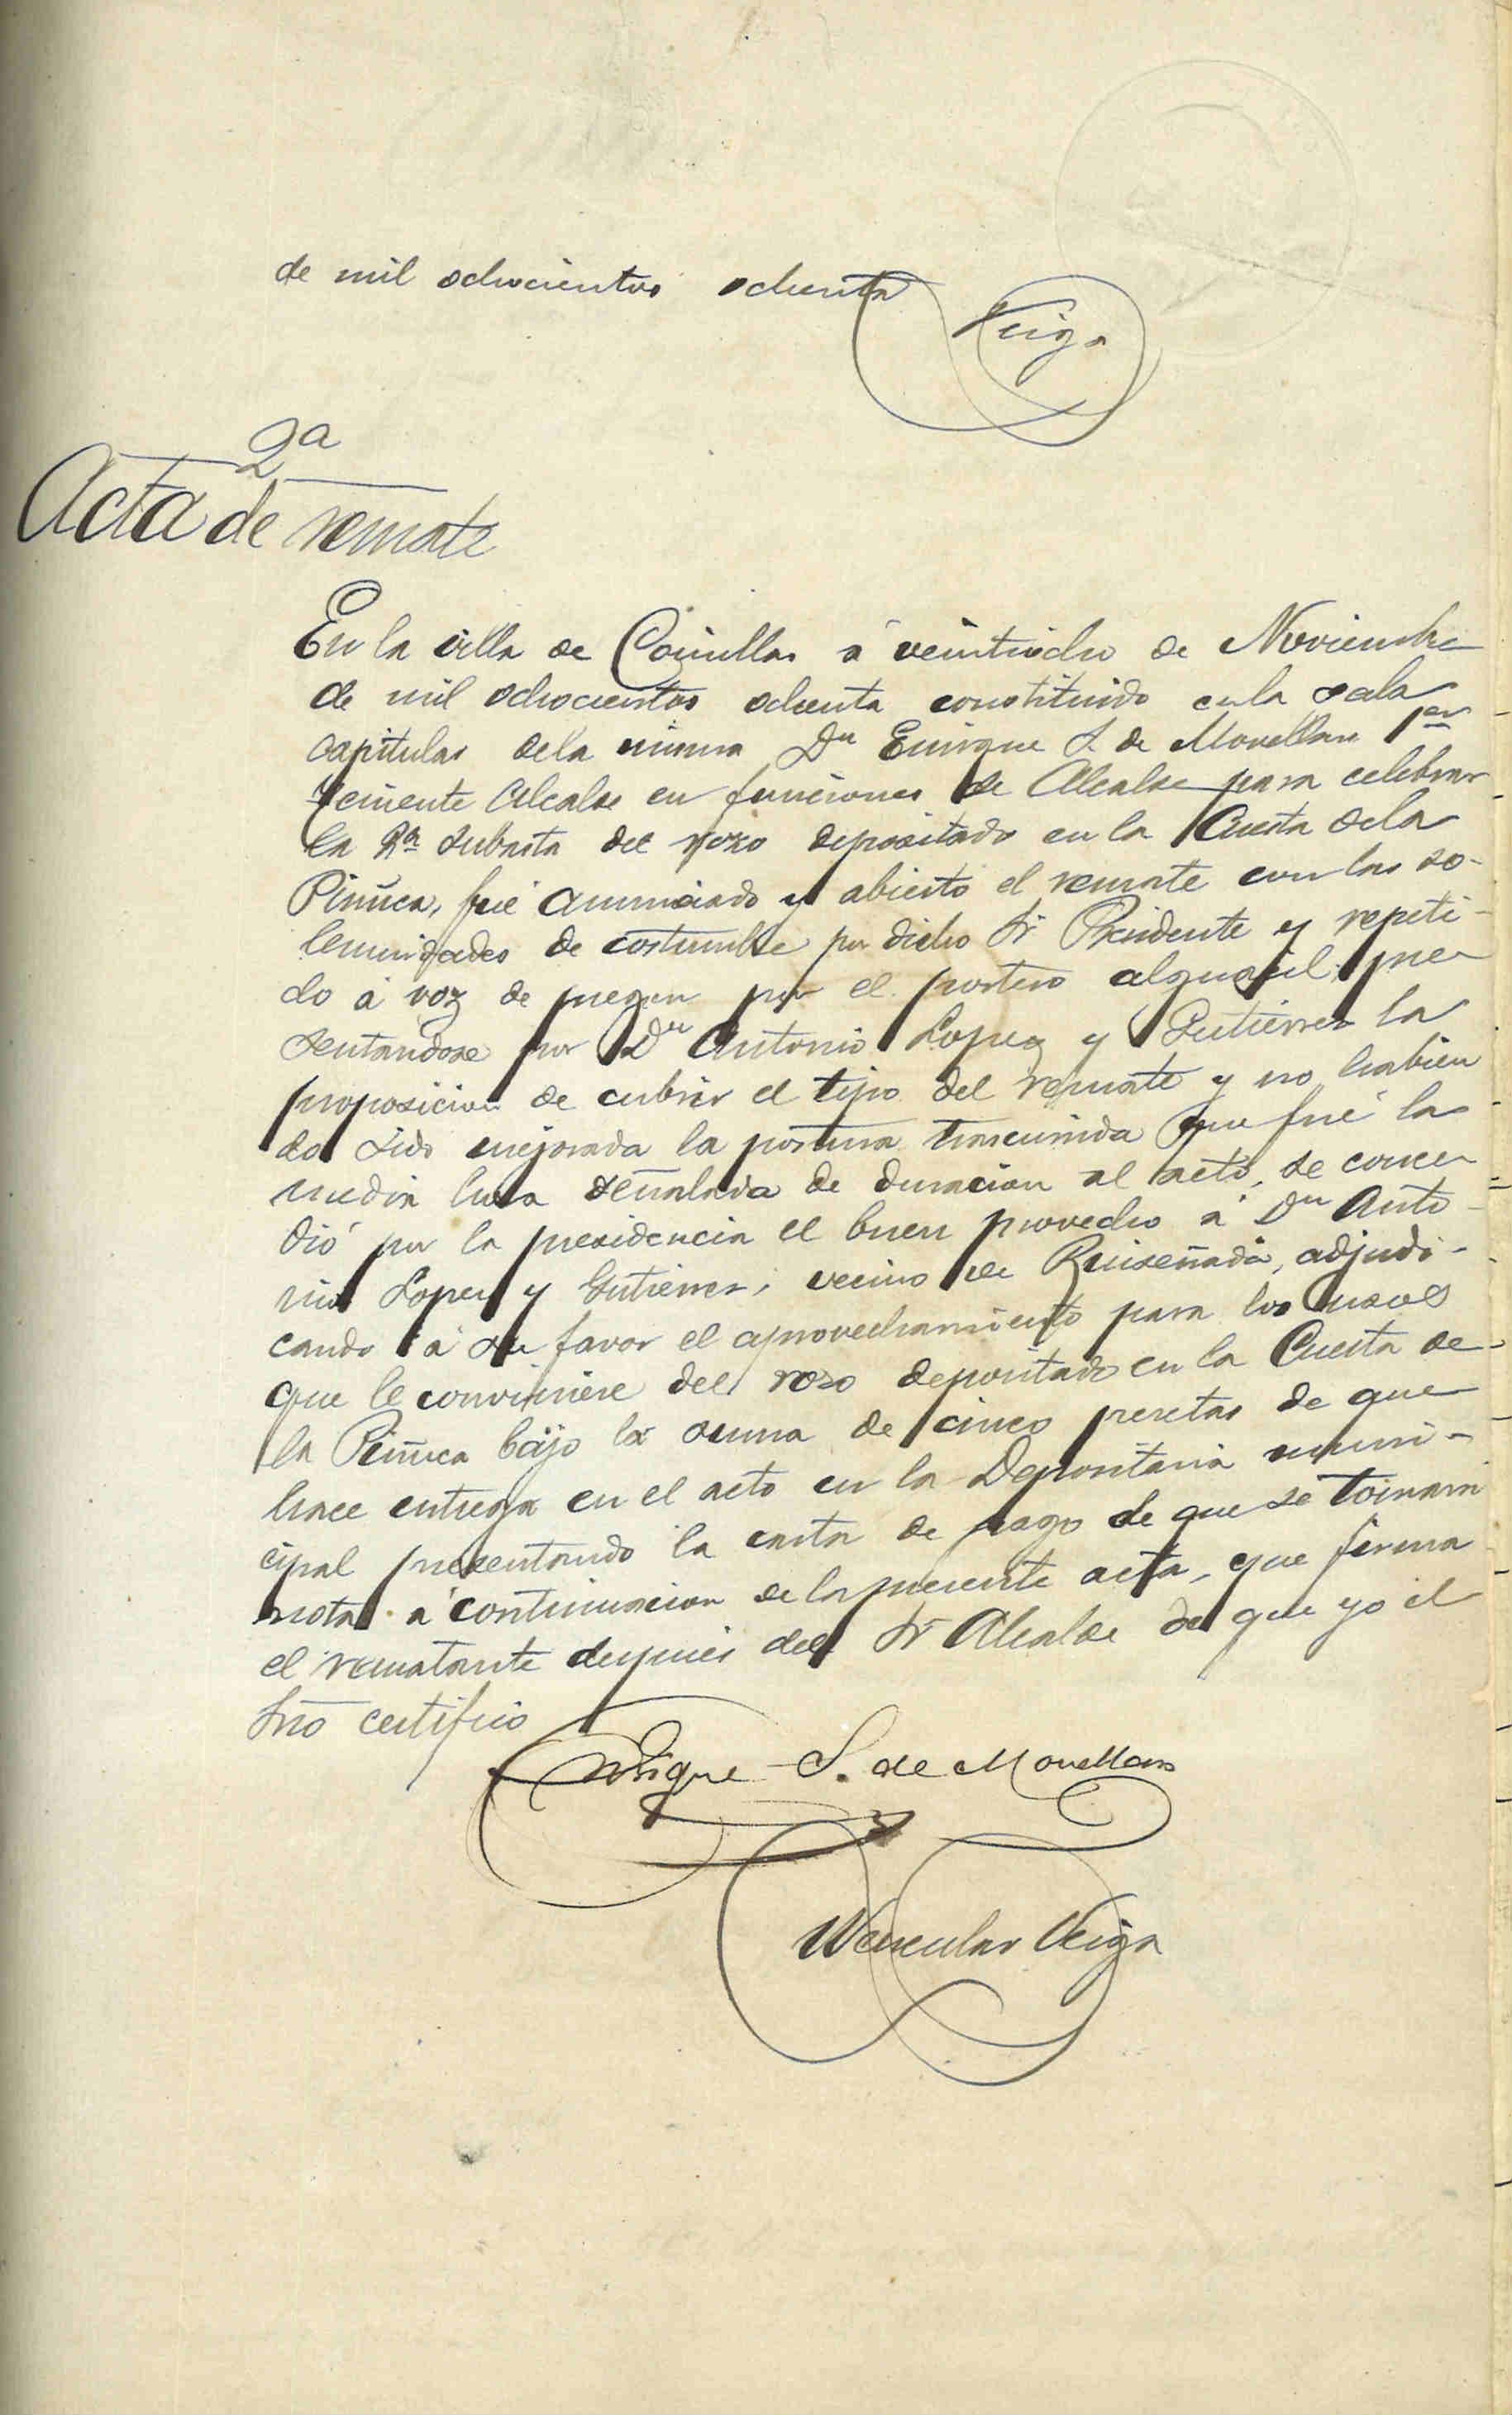 de mil ochocientos ochenta
Veiga
2ª
Acta de remate
En la villa de Comillas á veintiocho de Noviembre
de mil ochocientos ochenta constituido en la sala
capitular dela misma Dn Enrique S. de Movellan 1er
Teniente Alcalde en funciones de Alcalde para celebrar
la 2ª subasta del rozo depositado en la Cuesta dela
Piñuca, fué anunciado y abierto el remate con las so-
lemnidades de costumbre por dicho Sr Presidente y repeti-
do á voz de pregon por el portero alguacil, pre
sentandose por Dn Antonio Lopez y Gutierrez la
proposicion de cubrir el tipo del remate y no habien
do sido mejorada la postura trascurrida que fué la
media hora señalada de duracion al acto, se conce
dió por la presidencia el buen provecho á Dn Anto-
nio Lopez y Gutierrez, vecino de Ruiseñada, adjudi-
cando á su favor el aprovechamiento para los usos
que le conviniere del rozo depositado en la Cuesta de
la Piñuca bajo la suma de cinco pesetas de que
hace entrega en el acto en la Depositaria muni-
cipal presentando la carta de pago de que se tomara
nota á continuacion de la presente acta, que firma
el rematante despues del Sr Alcalde de que yo el
Srio certifico
Enrique S. de Movellan
Wenceslao Veiga